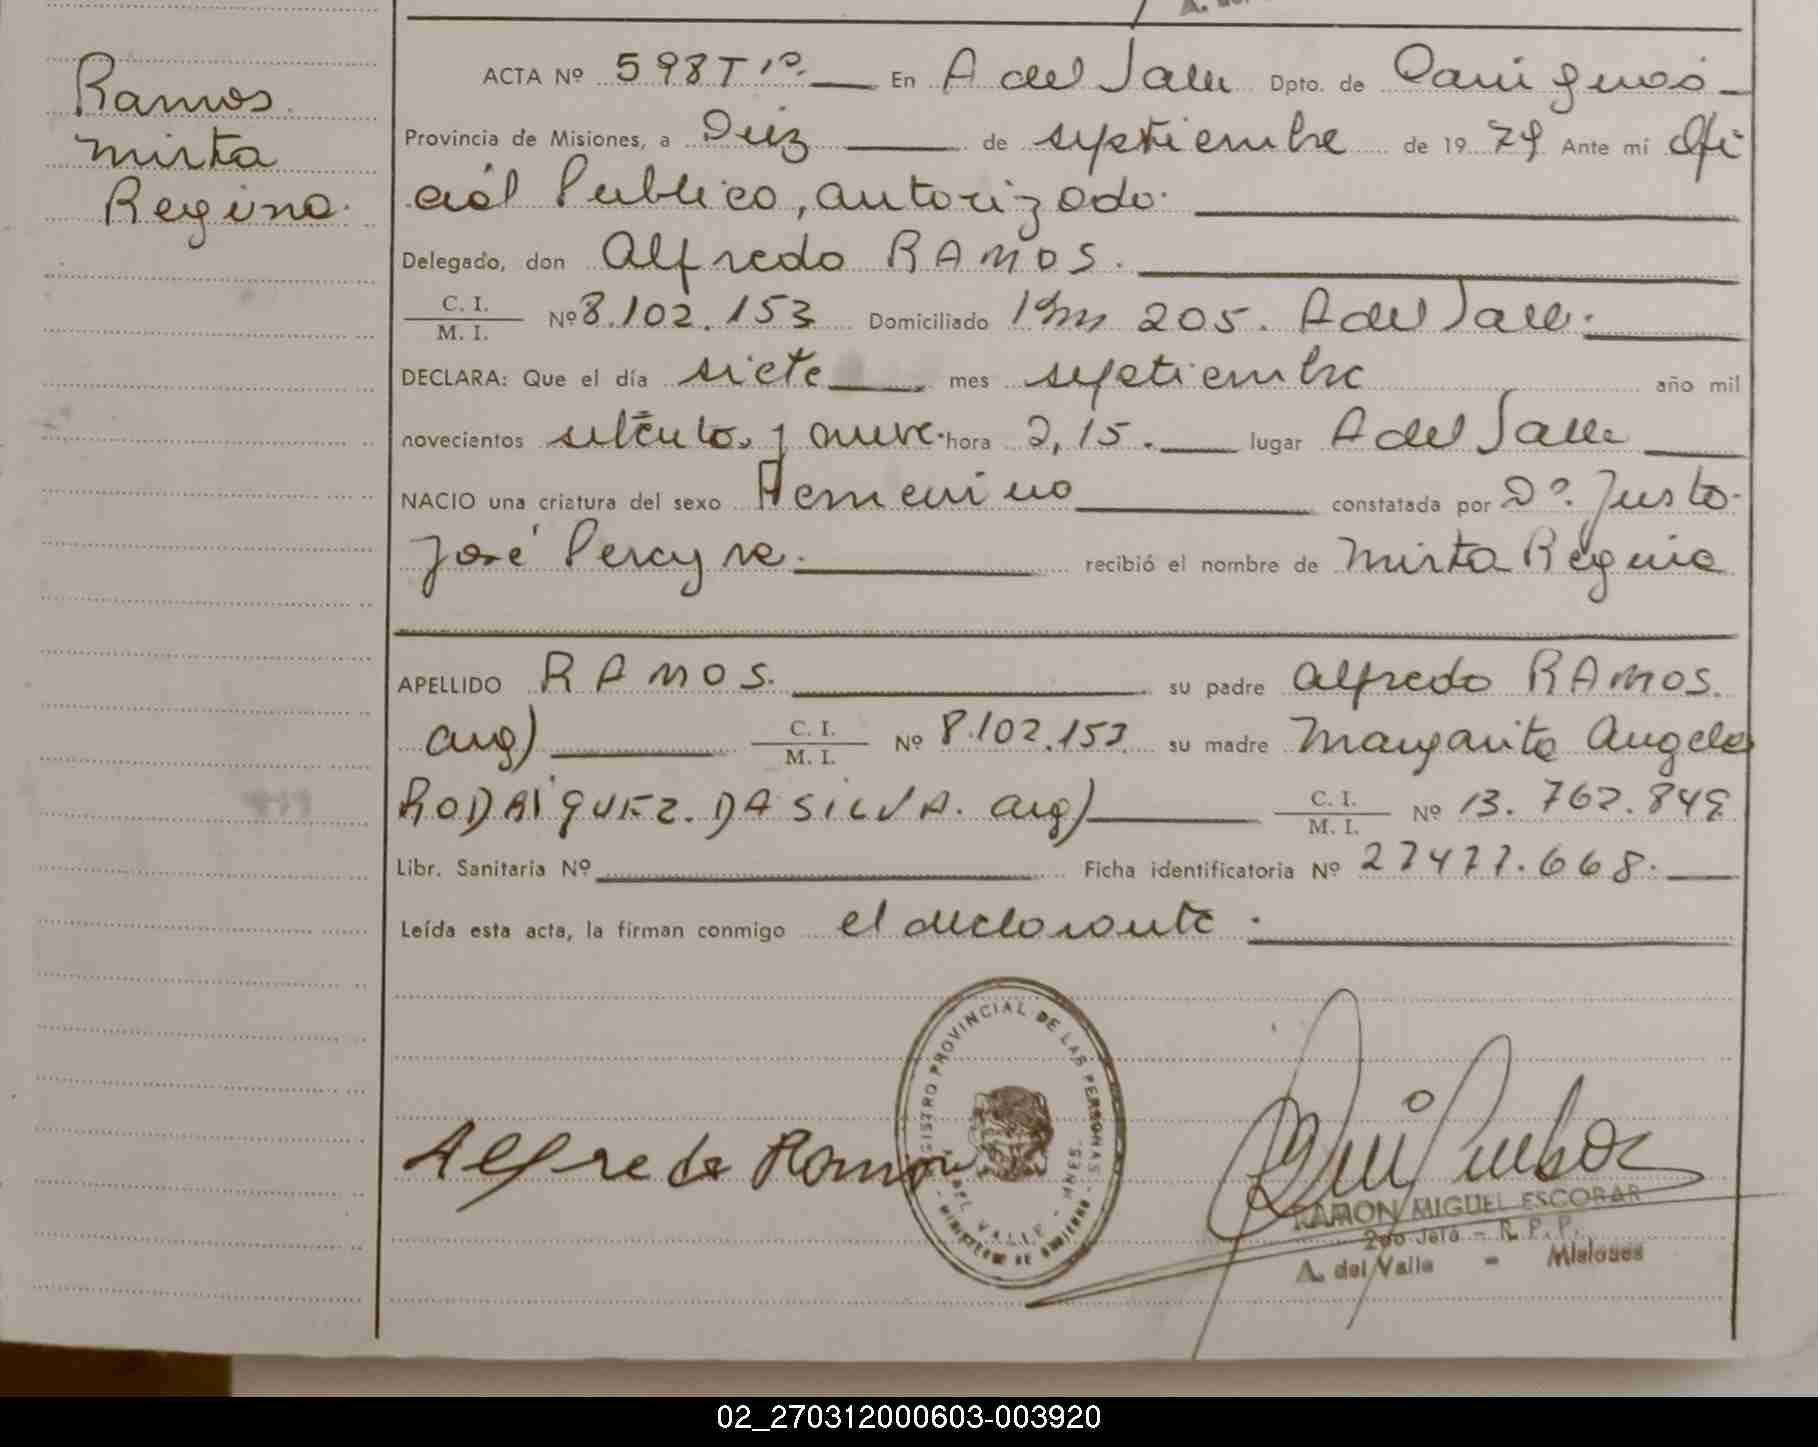 Ramos
Mirta
Regina.
ACTA Nº 598 Tº 1º. En A del Valle Dpto. de Cainguás
Provincia de Misiones, a Diez de septiembre de 1979 Ante mí Ofi
cial Publico, autorizado.
Delegado, don Alfredo RAMOS.
C. I.
M. I. Nº 8.102.153 Domiciliado Km 205. A del Valle.
DECLARA: Que el día siete mes septiembre año mil
novecientos setenta y nueve. hora 2,15. lugar A del Valle
NACIO una criatura del sexo Femenino constatada por Dº. Justo
José Pereyra. recibió el nombre de Mirta Regina
APELLIDO RAMOS. su padre Alfredo RAMOS.
arg) C. I. M. I. Nº 8.102.153 su madre Margarita Angela
RODRÍGUEZ DA SILVA. arg) C. I. M. I. Nº 13.762.849
Libr. Sanitaria Nº Ficha identificatoria Nº 27477.668.
Leída esta acta, la firman conmigo el declarante.
REGISTRO PROVINCIAL DE LAS PERSONAS
VALLE - MNES.
MINISTERIO DE GOBIERNO
Alfredo Ramos
RAMON MIGUEL ESCOBAR
2do Jefe - R. P. P.
A. del Valle - Misiones
02_270312000603-003920